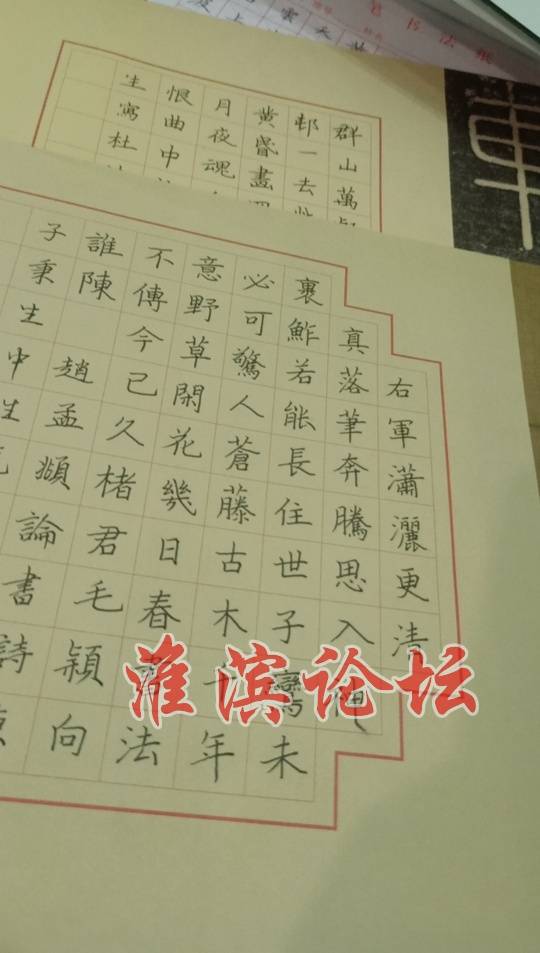 书法纸
群山萬
邨一去
黃昏畫
月夜魂
恨曲中
生寫杜
右軍瀟灑更清
真落筆奔騰思入神
裹鮓若能長住世子鸞未
必可驚人蒼藤古木千年
意野草閑花幾日春書法
不傳今已久楮君毛穎向
誰陳 趙孟頫論書詩
子秉生中生
淮滨论坛